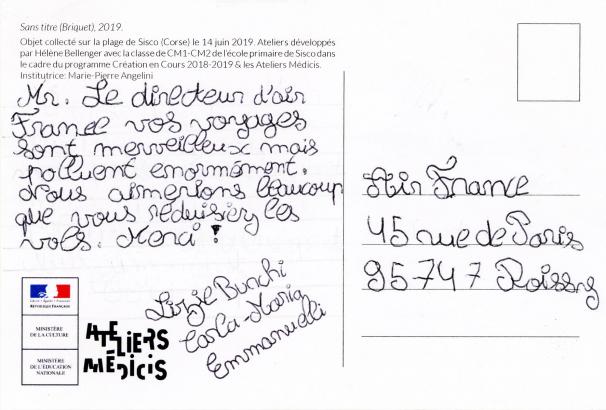 Sans titre (Briquet), 2019.
Objet collecté sur la plage de Sisco (Corse) le 14 juin 2019. Ateliers développés
par Hélène Bellenger avec la classe de CM1-CM2 de l'école primaire de Sisco dans
le cadre du programme Création en Cours 2018-2019 & les Ateliers Médicis.
Institutrice: Marie-Pierre Angelini
Mr. Le directeur d'air
France vos voyages
sont merveilleux mais
polluent enormément.
Nous aimerions beaucoup
que vous réduisiez les
vols. Merci !
Lizzie Bunchi
Carla-Maria
Emmanuelli
Air France
45 rue de Paris
95747 Roissy
RÉPUBLIQUE FRANÇAISE
MINISTÈRE
DE LA CULTURE
MINISTÈRE
DE L'ÉDUCATION
NATIONALE
ATELIERS
MÉDICIS